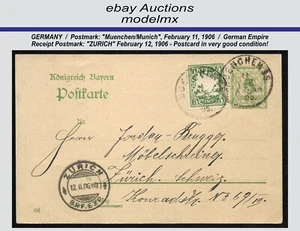 ebay Auctions
modelmx
GERMANY / Postmark: "Muenchen/Munich", February 11, 1906 / German Empire
Receipt Postmark: "ZURICH" February 12, 1906 - Postcard in very good condition!
Königreich Bayern
Postkarte
MUENCHEN
Herrn Jordan-
Möbelschreing.
Zürich Schweiz.
Konradstr. No 69/
ZÜRICH
12.II.06.VIII
BRF.EXP.
06